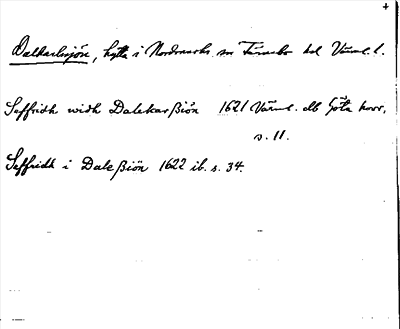 Dalkarlssjön, hytta i Nordmarks sn Färnebo hd Värml. l.
Seffridh widh Dalekarßiön 1621 Värml. db Göta hovr.
s. 11.
Seffridh i Daleßiön 1622 ib. s. 34.